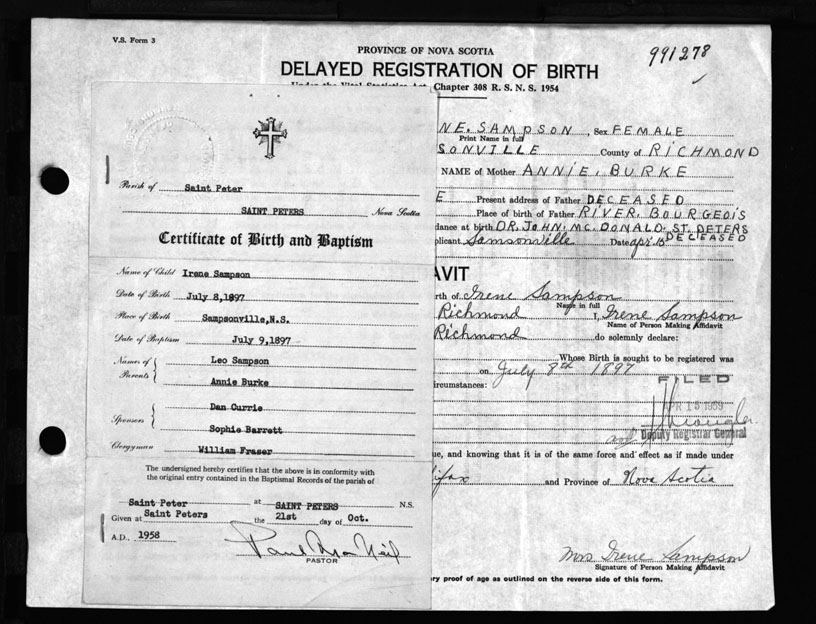 V.S. Form 3
991278
PROVINCE OF NOVA SCOTIA
DELAYED REGISTRATION OF BIRTH
Under the Vital Statistics Act, Chapter 308 R. S. N. S. 1954
Parish of Saint Peter
SAINT PETERS Nova Scotia
Certificate of Birth and Baptism
Name of Child Irene Sampson
Date of Birth July 8,1897
Place of Birth Sampsonville,N.S.
Date of Baptism July 9,1897
Names of Parents Leo Sampson
Annie Burke
Sponsors Dan Currie
Sophie Barrett
Clergyman William Fraser
The undersigned hereby certifies that the above is in conformity with
the original entry contained in the Baptismal Records of the parish of
Saint Peter at SAINT PETERS N.S.
Given at Saint Peters the 21st day of Oct.
A.D., 1958
Paul MacNeil
PASTOR
NE. SAMPSON, Sex FEMALE
Print Name in full
SONVILLE County of RICHMOND
NAME of Mother ANNIE. BURKE
E Present address of Father DECEASED
Place of birth of Father RIVER. BOURGEOIS
dance at birth DR. JOHN. MC. DONALD. ST. PETERS
DECEASED
plicant Samsonville Date apr. 13
AVIT
rth of Irene Sampson
Name in full
Richmond I, Irene Sampson
Name of Person Making Affidavit
Richmond do solemnly declare:
Whose Birth is sought to be registered was
on July 8th 1897
ircumstances:
FILED
APR 15 1959
Deputy Registrar General
ue, and knowing that it is of the same force and effect as if made under
ifax and Province of Nova Scotia
Mrs Irene Sampson
Signature of Person Making Affidavit
ry proof of age as outlined on the reverse side of this form.